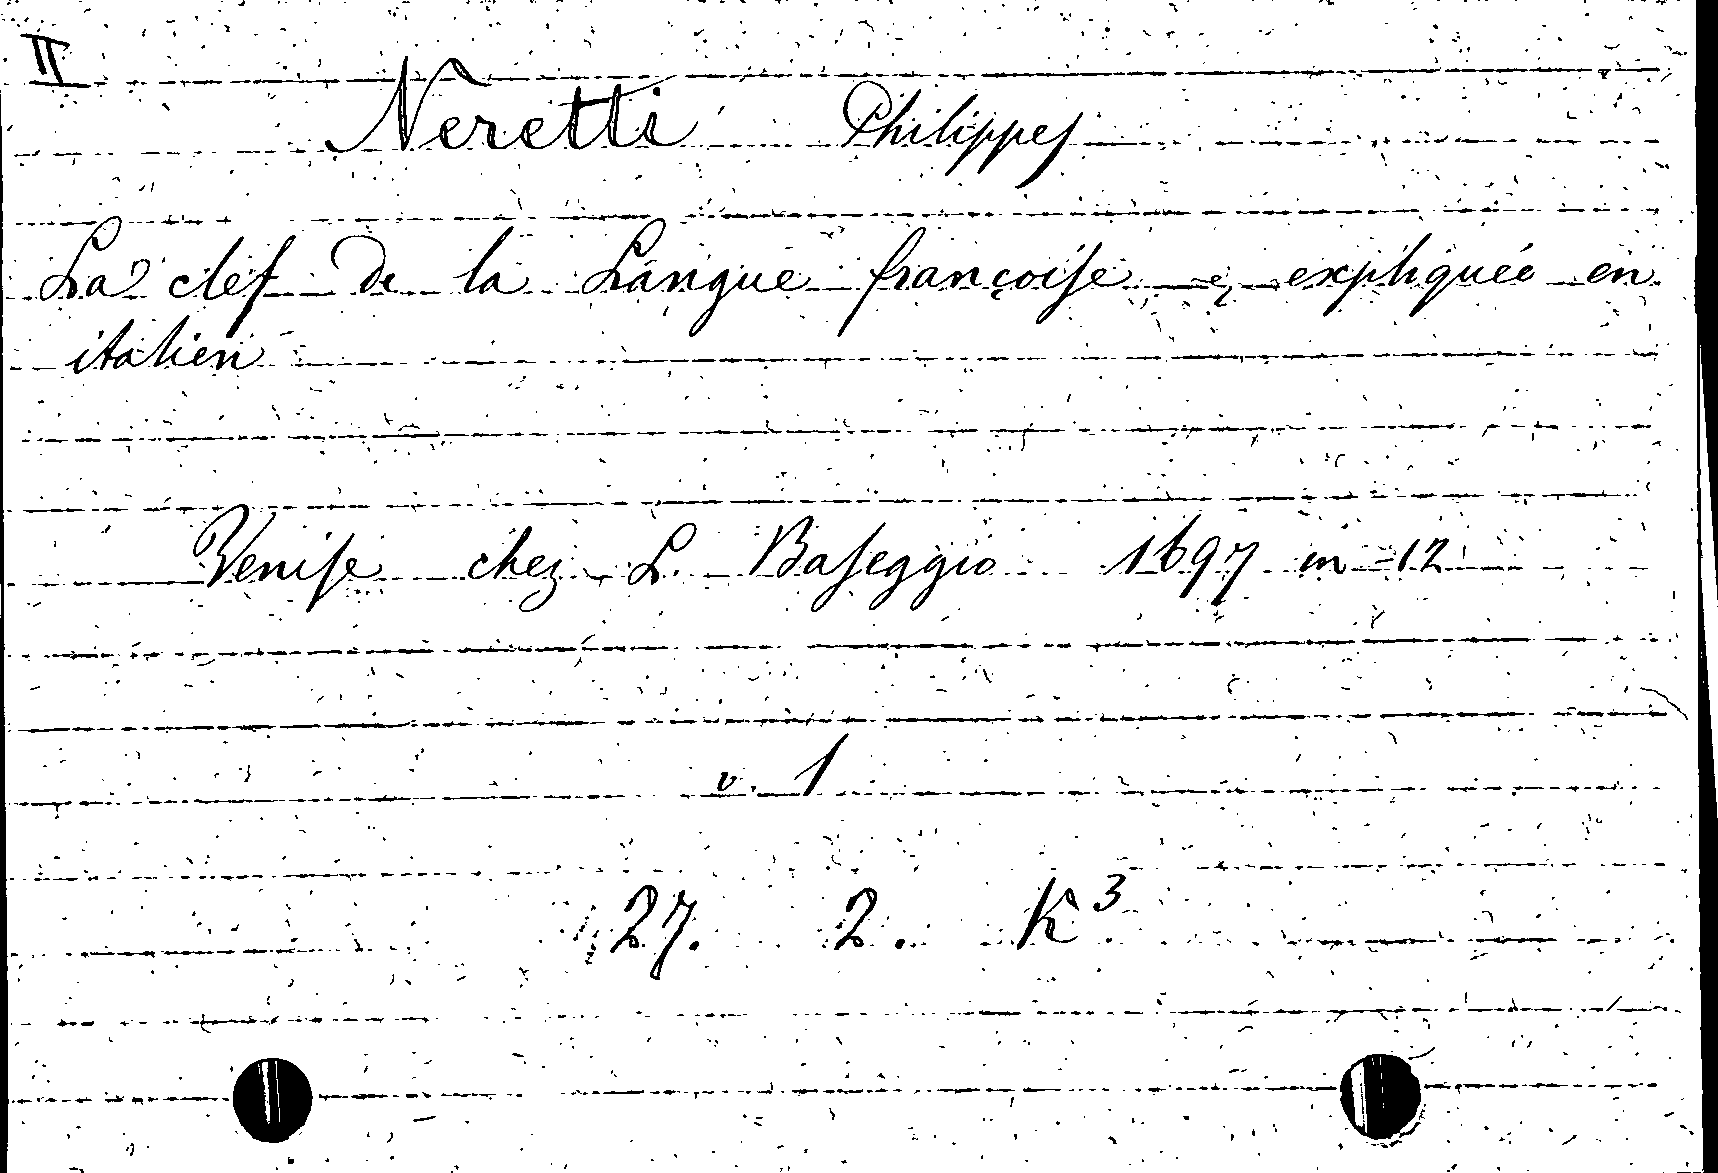 II
Neretti Philippeſ
La clef de la Langue françoiſe expliquée en
italien
Veniſe chez L. Baſeggio 1697 in-12
v. 1
27. 2. K³